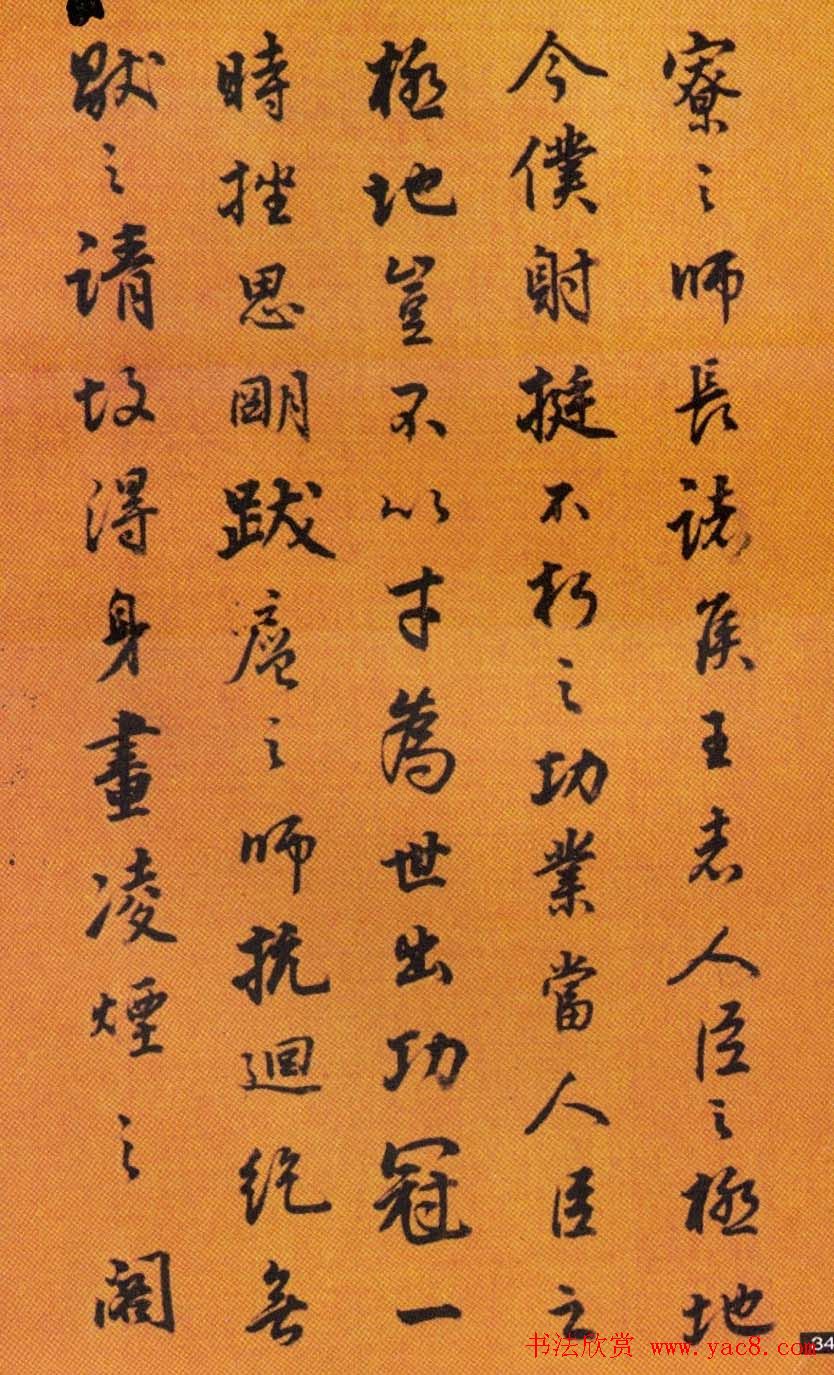 寮之師長諸侯王者人臣之極地
今僕射挺不朽之功業當人臣之
極地豈不以才為世出功冠一
時挫思明跋扈之師抗迴紇無
猒之請故得身畫凌煙之閣
书法欣赏 www.yac8.com
34